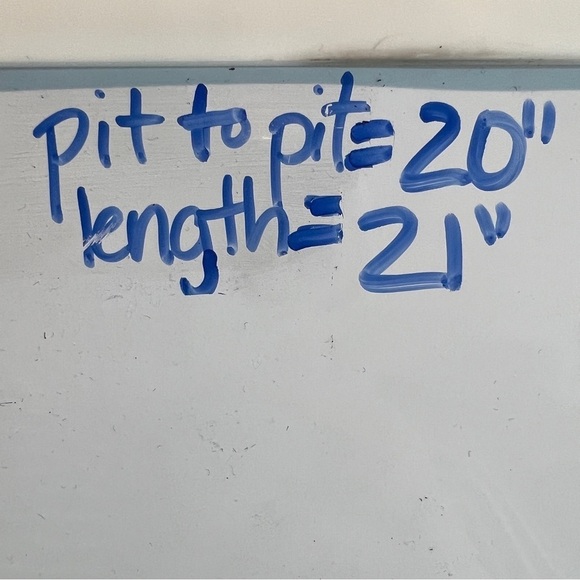 pit to pit= 20"
length= 21"